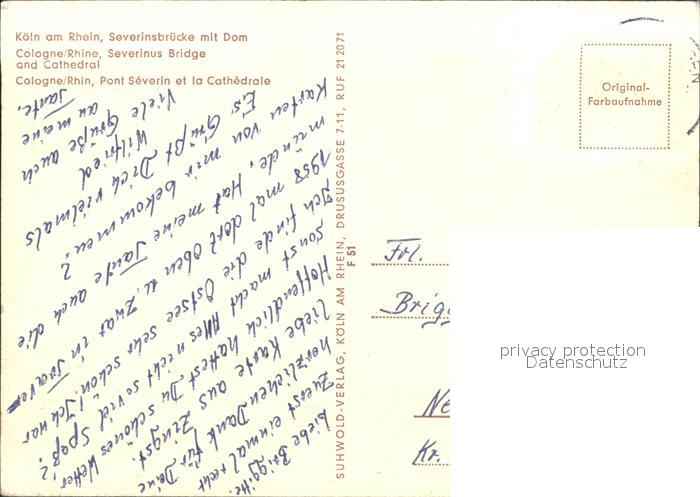 Köln am Rhein, Severinsbrücke mit Dom
Cologne/Rhine, Severinus Bridge
and Cathedral
Cologne/Rhin, Pont Séverin et la Cathédrale
Liebe Brigitte.
Zuerst einmal recht
herzlichen Dank für Deine
liebe Karte aus Zingst.
Hoffendlich hattest Du schönes Wetter
sonst macht Alles nicht so viel Spaß?
Ich finde die Ostsee sehr schön! Ich war
1958 mal dort oben u. zwar in Traver-
münde. Hat meine Tante auch die
Karten von mir bekommen?
Es Grüßt Dich vielmals
Wilfried
Viele Grüße auch
an meine
Tante.
SUHWOLD-VERLAG, KÖLN AM RHEIN, DRUSUSGASSE 7-11, RUF 21 20 71
F 51
Original-
Farbaufnahme
Frl.
Brig
Ne
Kr.
privacy protection
Datenschutz